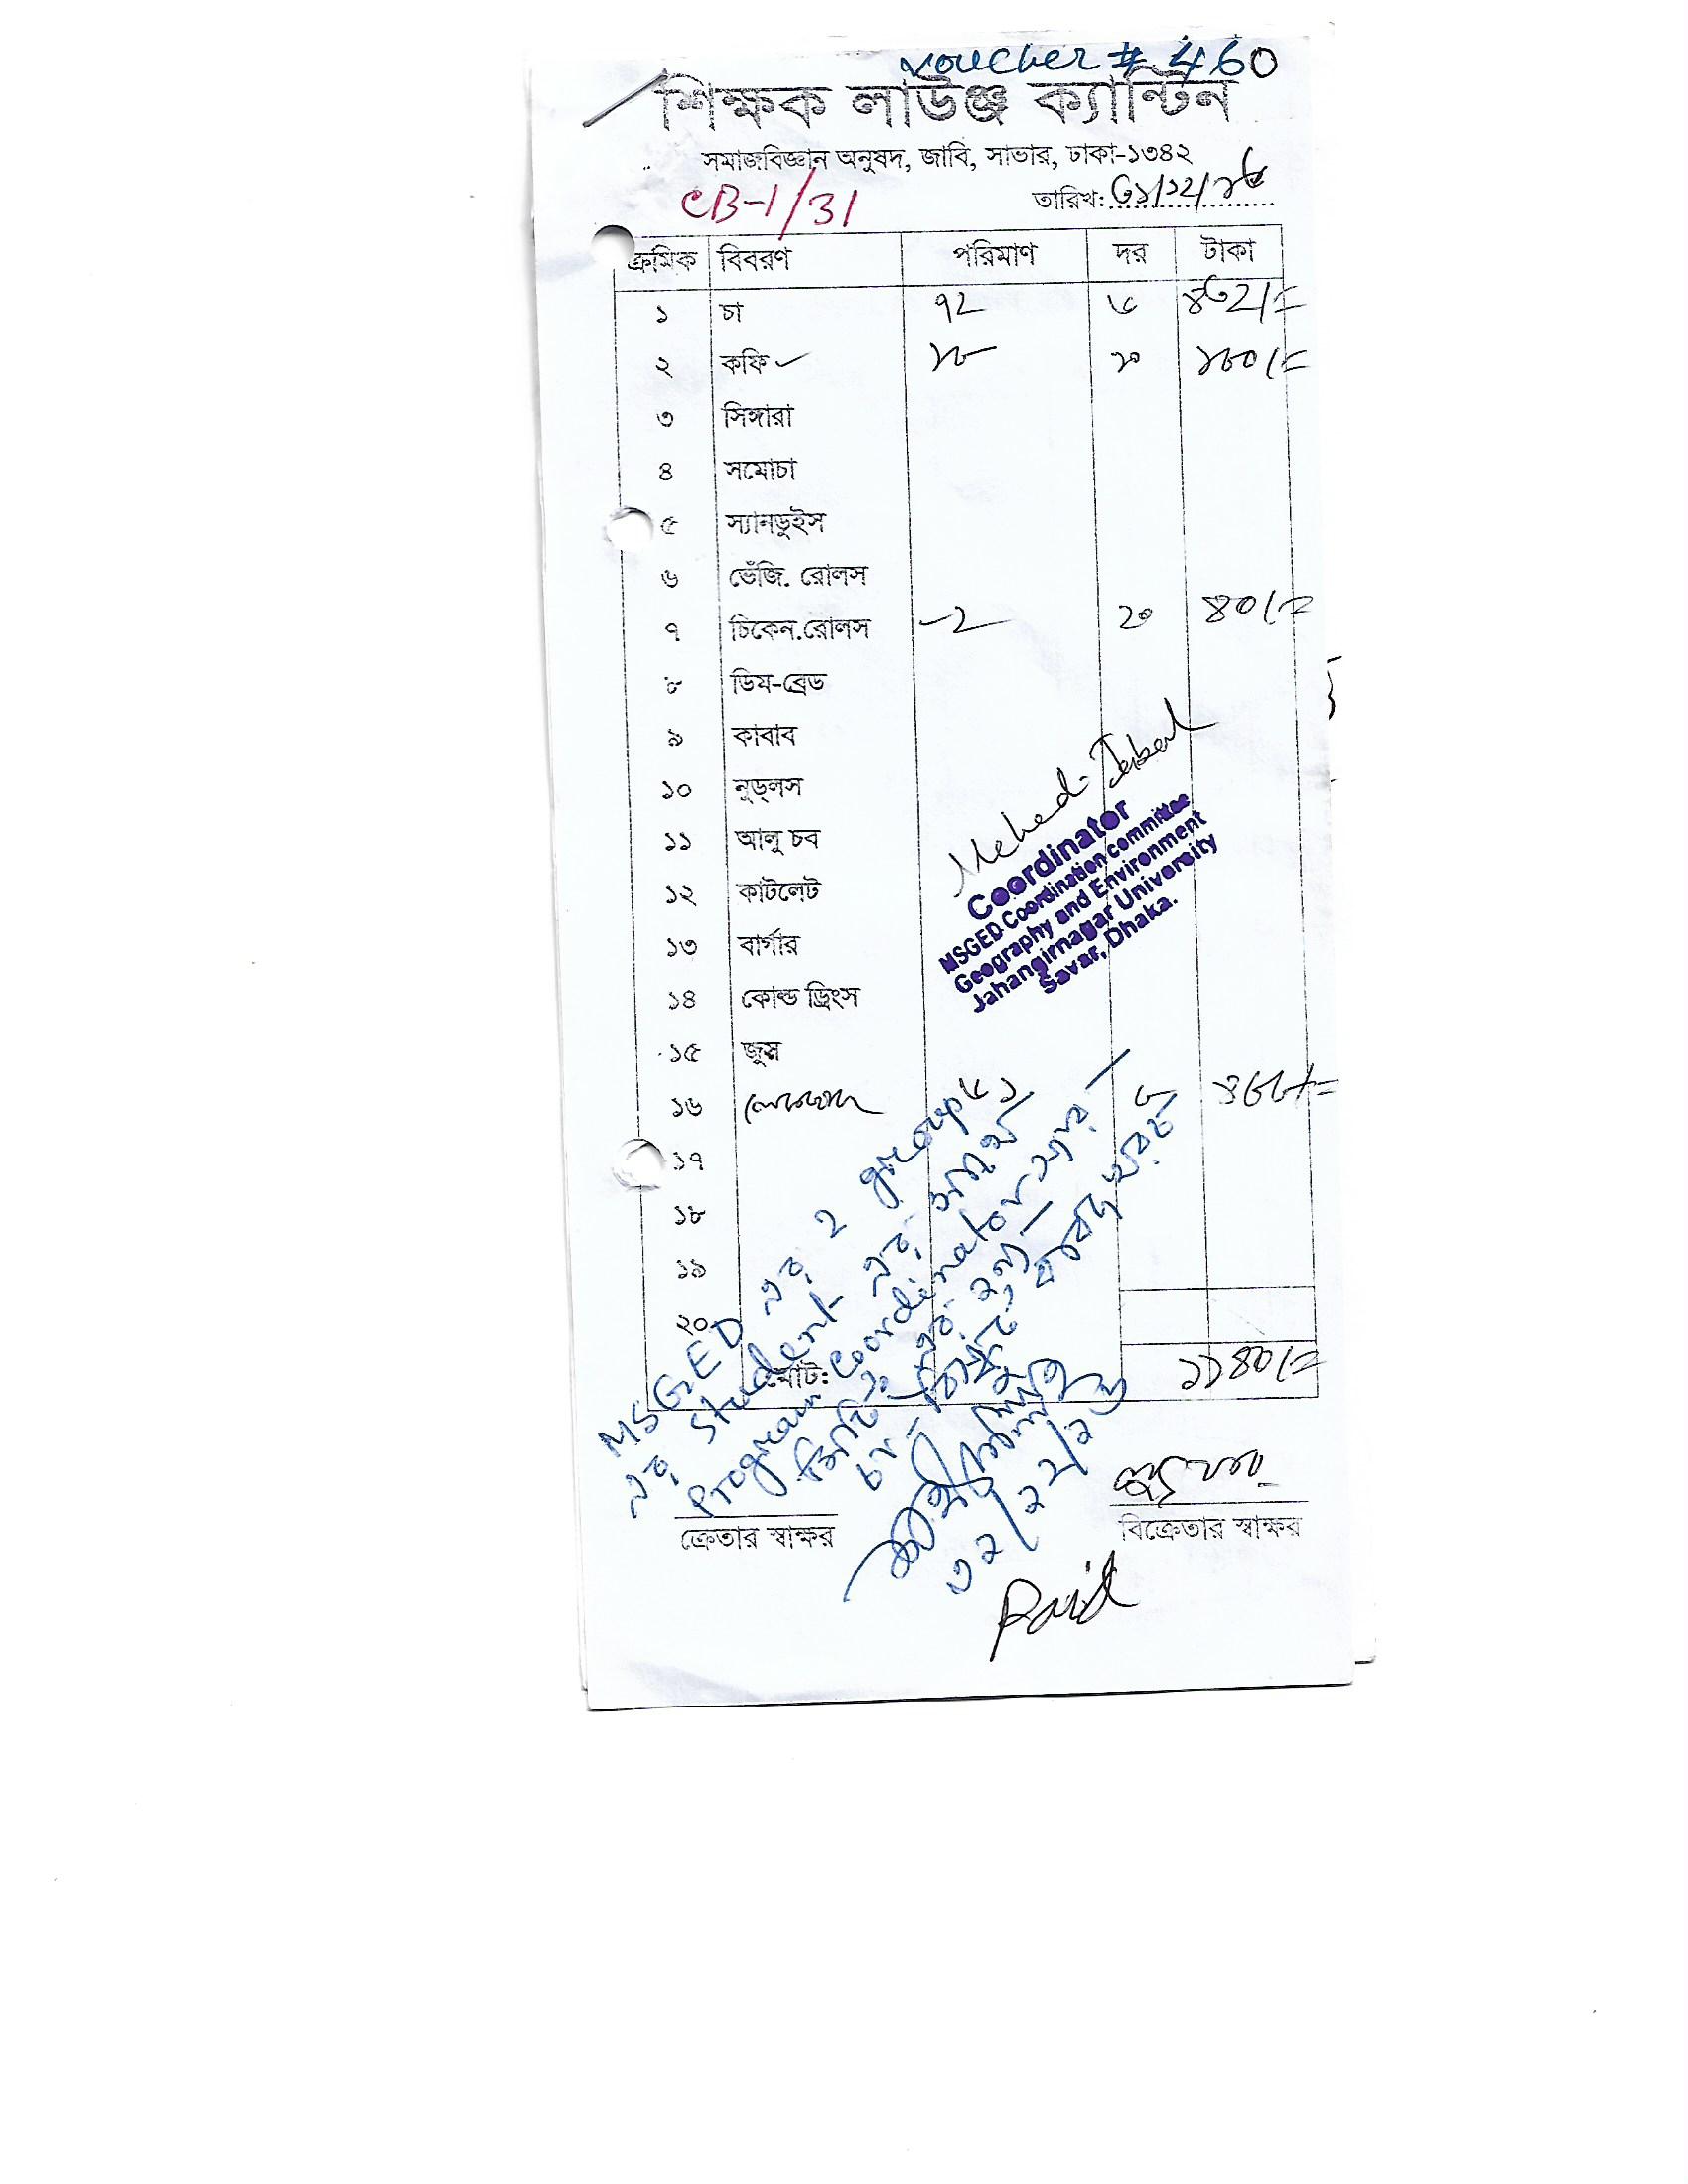 voucher # 460
শিক্ষক লাউঞ্জ ক্যান্টিন
সমাজবিজ্ঞান অনুষদ, জাবি, সাভার, ঢাকা-১৩৪২
CB-1/31 তারিখ:
ক্রমিক বিবরণ পরিমাণ দর টাকা
১ চা ৭২ ৬ ৪৩২/=
২ কফি ১৮ ১০ ১৮০/=
৩ সিঙ্গারা
৪ সমোচা
৫ স্যানডুইস
৬ ভেঁজি. রোলস
৭ চিকেন.রোলস ২ ২০ ৪০/=
৮ ডিম-ব্রেড
৯ কাবাব
১০ নুড্লস
১১ আলু চব
১২ কাটলেট
১৩ বার্গার
১৪ কোল্ড ড্রিংস
১৫ জুস
১৬ ৬১ ৮ ৪৮৮/=
১৭
১৮
১৯
২০
মোট: ১১৪০/=
Coordinator
MSGED Coordination committee
Geography and Environment
Jahangirnagar University
Savar, Dhaka.
MSGED এর ২ group
এর student এর সাথে
program coordinator স্যার
ক্রেতার স্বাক্ষর
বিক্রেতার স্বাক্ষর
Paid